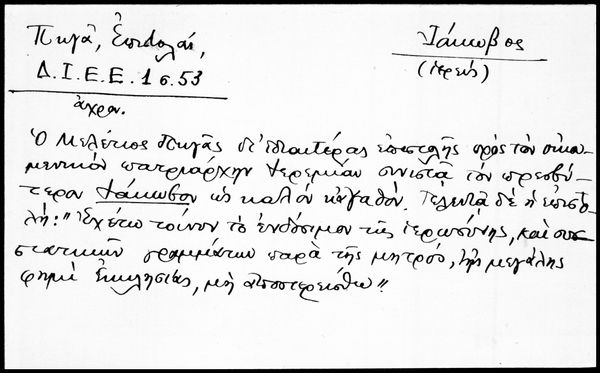 Πηγᾶ, Ἐπιστολαί,
Δ.Ι.Ε.Ε. 1 σ. 53
ἀχρον.
Ἰάκωβος
(ἱερεύς)
Ὁ Μελέτιος Πηγᾶς δι' ἰδιαιτέρας ἐπιστολῆς πρὸς τὸν οἰκου-
μενικὸν πατριάρχην Ἱερεμίαν συνιστᾶ τὸν πρεσβύ-
τερον Ἰάκωβον ὡς καλὸν κἀγαθόν. Τελευτᾶ δὲ ἡ ἐπιστο-
λή: "Ἐχέτω τοίνυν τὸ ἐνδόσιμον τῆς ἱερωσύνης, καὶ συ-
στατικῶν γραμμάτων παρὰ τῆς μητρός, τῆς μεγάλης
φημὶ Ἐκκλησίας, μὴ ἀποστερείσθω"